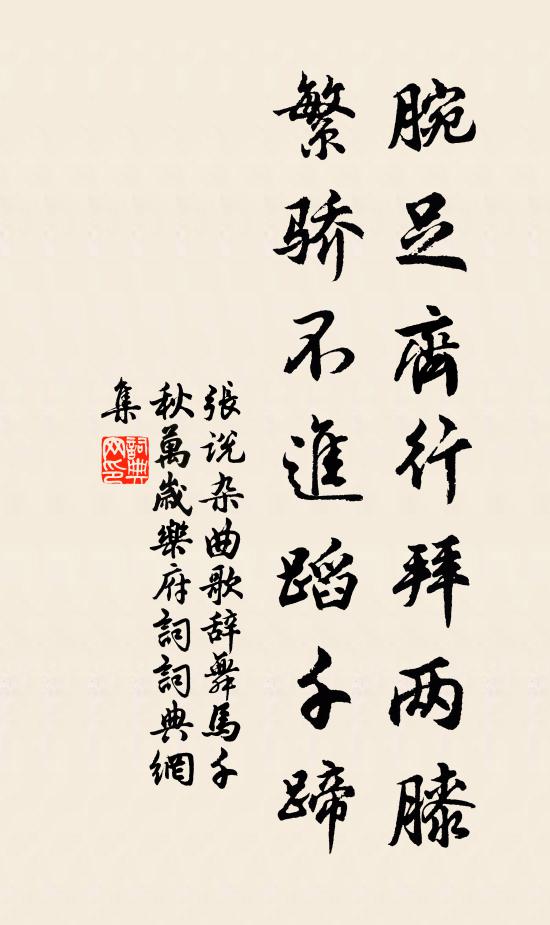 腕足齐行拜两膝
繁骄不進蹈千蹄
張说杂曲歌辞舞馬千
秋萬歲樂府詞詞典網
集
詞典
网印